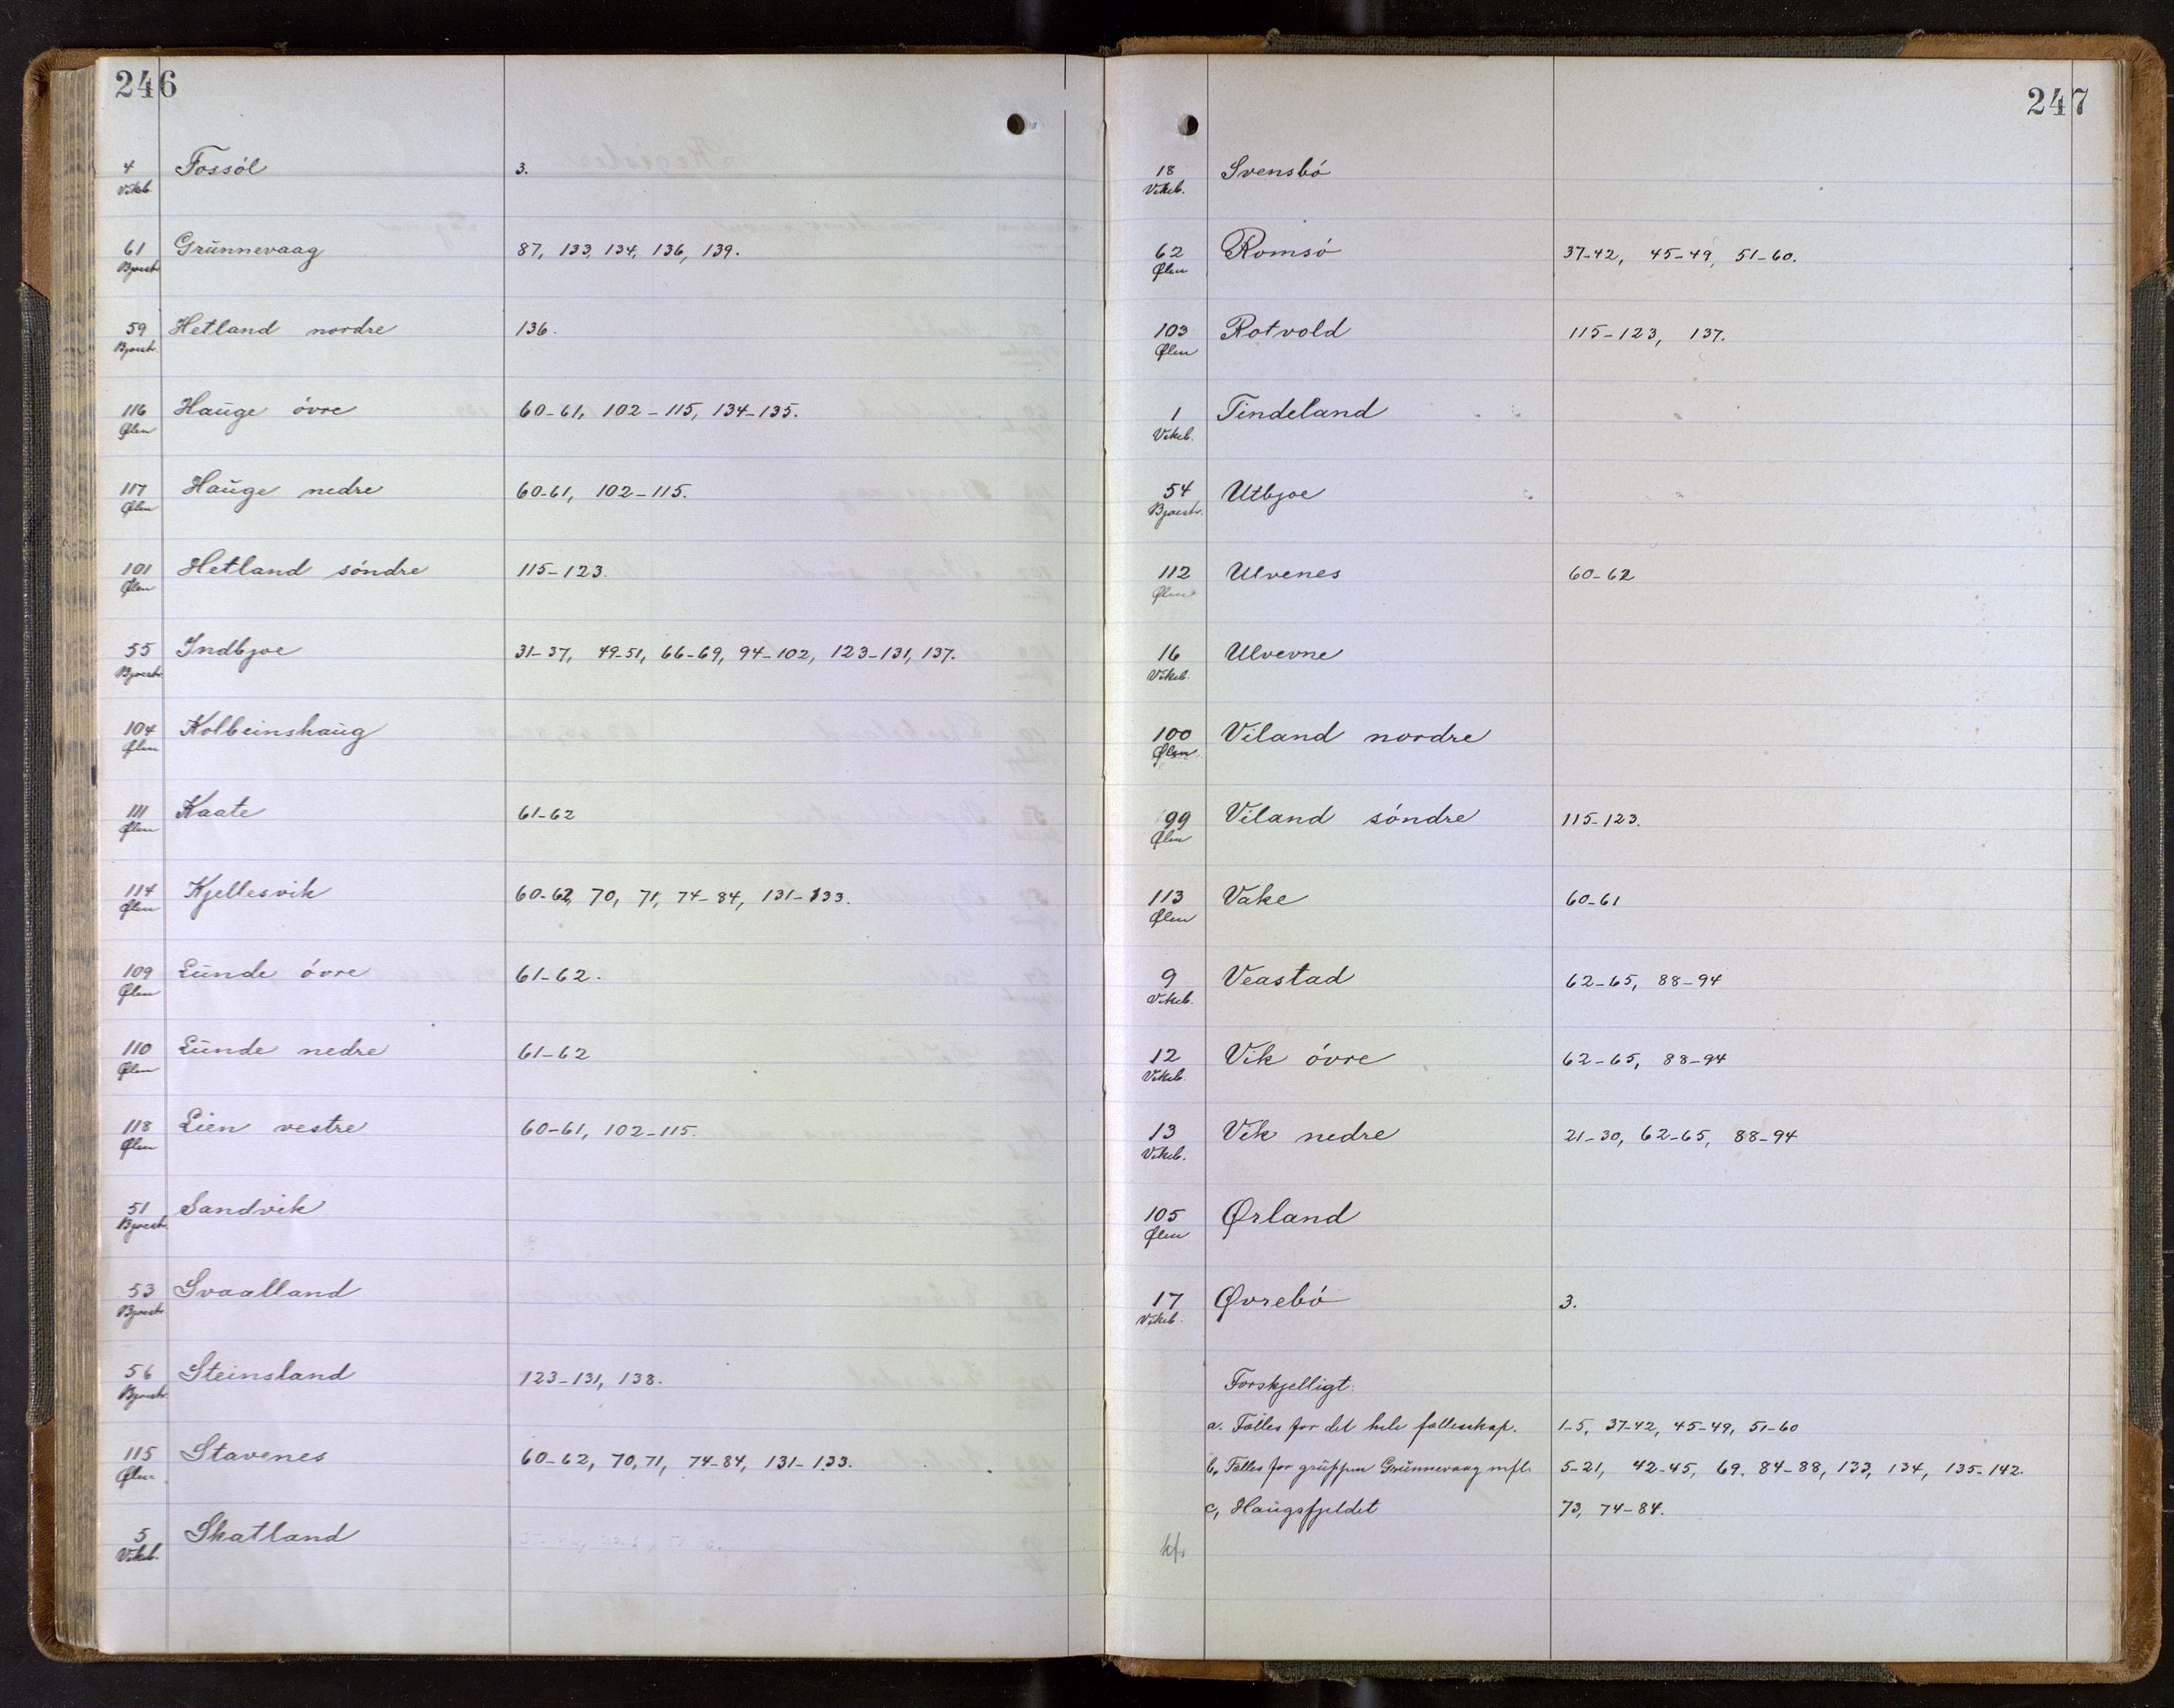 246
4 Fossöl 3.
Vikeb.
61 Grünnevaag 87, 133, 134, 136, 139.
Bjoestr.
59 Hetland nordre 136.
Bjoestr.
116 Haüge övre 60-61, 102-115, 134-135.
Ølen
117 Haüge nedre 60-61, 102-115.
Ølen
101 Hetland söndre 115-123.
Ølen
55 Indbjoe 31-37, 49-51, 66-69, 94-102, 123-131, 137.
Bjoestr.
104 Kolbeinshaüg
Ølen
111 Kaate 61-62
Ølen
114 Kjellesvik 60-62, 70, 71, 74-84, 131-133.
Ølen
109 Lünde övre 61-62.
Ølen
110 Lünde nedre 61-62
Ølen
118 Lien vestre 60-61, 102-115.
Ølen
51 Sandvik
Bjoestr.
53 Svaalland
Bjoestr.
56 Steinsland 123-131, 138.
Bjoestr.
115 Stavenes 60-62, 70, 71, 74-84, 131-133.
Ølen
5 Skatland
Vikeb.
247
18 Svensbö
Vikeb.
62 Romsö 37-42, 45-49, 51-60.
Ølen
103 Rotvold 115-123, 137.
Ølen
1 Tindeland
Vikeb.
54 Utbjoe
Bjoestr.
112 Ulvenes 60-62
Ølen
16 Ulverne
Vikeb.
100 Viland nordre
Ølen
99 Viland söndre 115-123.
Ølen
113 Vake 60-61
Ølen
9 Veastad 62-65, 88-94
Vikeb.
12 Vik övre 62-65, 88-94
Vikeb.
13 Vik nedre 21-30, 62-65, 88-94
Vikeb.
105 Ørland
Ølen
17 Øvrebö 3.
Vikeb.
Forskjelligt:
a. Fælles for det hele fællesskap. 1-5, 37-42, 45-49, 51-60
b, Fælles for grüppen Grünnevaag m fl. 5-21, 42-45, 69, 84-88, 133, 134, 135-142.
c, Haügsfjeldet 73, 74-84.